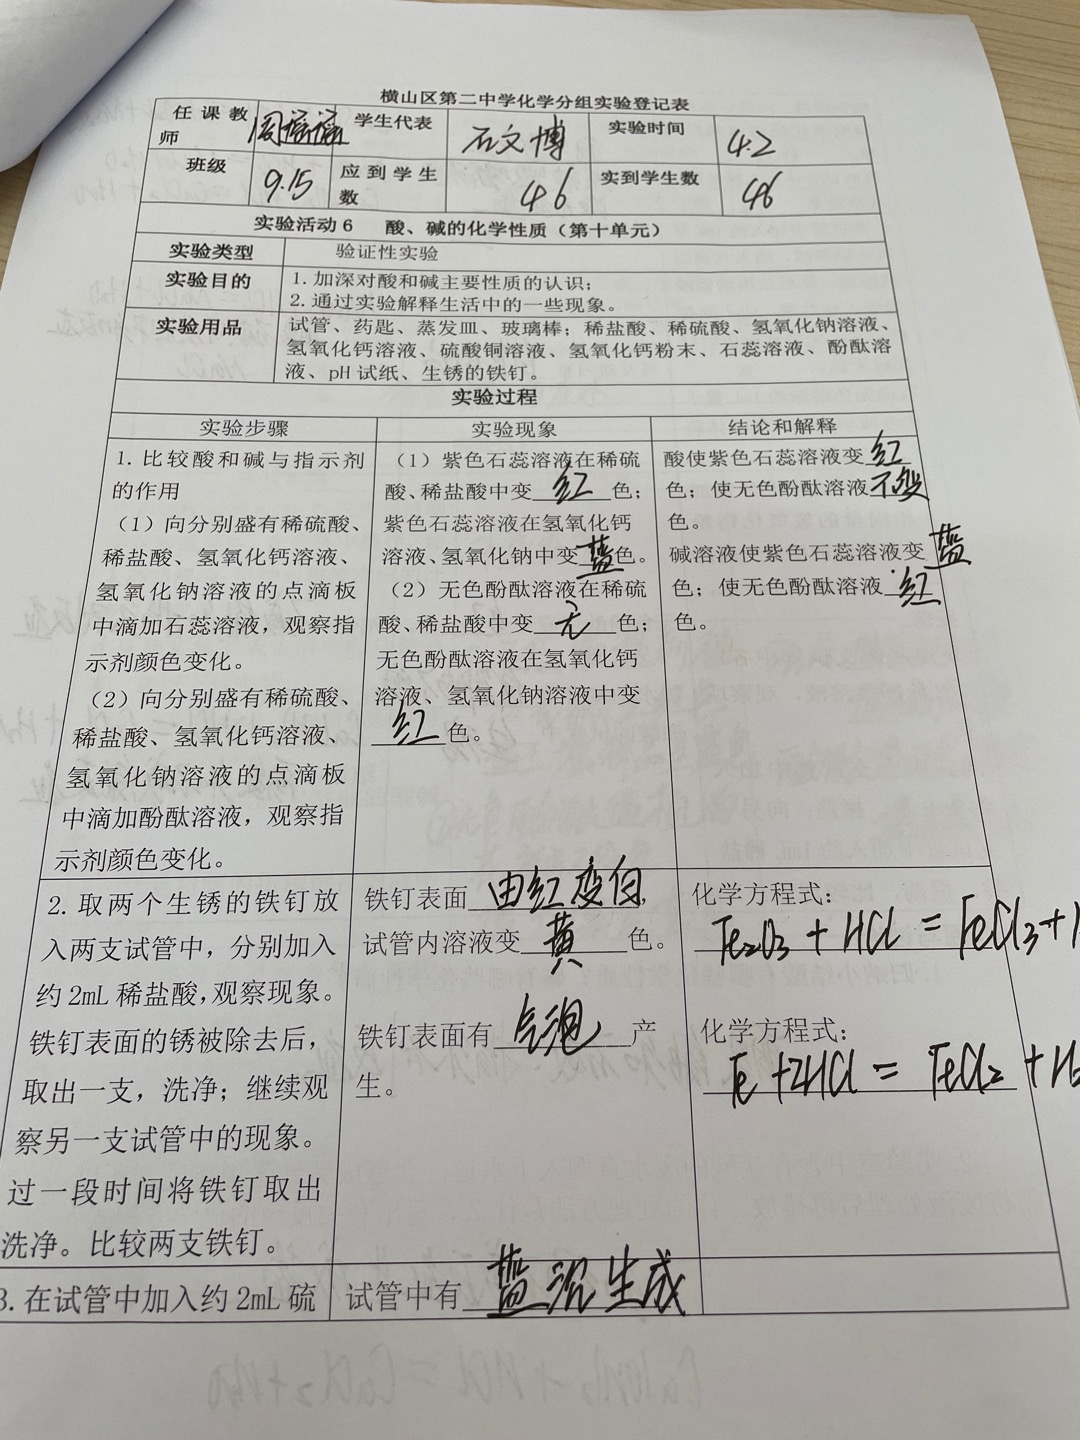 横山区第二中学化学分组实验登记表
任课教师 学生代表 石文博 实验时间 4.2
班级 9.15 应到学生数 46 实到学生数 46
实验活动6 酸、碱的化学性质（第十单元）
实验类型 验证性实验
实验目的 1.加深对酸和碱主要性质的认识；
2.通过实验解释生活中的一些现象。
实验用品 试管、药匙、蒸发皿、玻璃棒；稀盐酸、稀硫酸、氢氧化钠溶液、
氢氧化钙溶液、硫酸铜溶液、氢氧化钙粉末、石蕊溶液、酚酞溶
液、pH试纸、生锈的铁钉。
实验过程
实验步骤 实验现象 结论和解释
1.比较酸和碱与指示剂
的作用
（1）向分别盛有稀硫酸、
稀盐酸、氢氧化钙溶液、
氢氧化钠溶液的点滴板
中滴加石蕊溶液，观察指
示剂颜色变化。
（2）向分别盛有稀硫酸、
稀盐酸、氢氧化钙溶液、
氢氧化钠溶液的点滴板
中滴加酚酞溶液，观察指
示剂颜色变化。
（1）紫色石蕊溶液在稀硫
酸、稀盐酸中变红色；
紫色石蕊溶液在氢氧化钙
溶液、氢氧化钠中变蓝色。
（2）无色酚酞溶液在稀硫
酸、稀盐酸中变无色；
无色酚酞溶液在氢氧化钙
溶液、氢氧化钠溶液中变
红色。
酸使紫色石蕊溶液变红
色；使无色酚酞溶液不变
色。
碱溶液使紫色石蕊溶液变蓝
色；使无色酚酞溶液红
色。
2.取两个生锈的铁钉放
入两支试管中，分别加入
约2mL稀盐酸，观察现象。
铁钉表面的锈被除去后，
取出一支，洗净；继续观
察另一支试管中的现象。
过一段时间将铁钉取出
洗净。比较两支铁钉。
铁钉表面由红变白，
试管内溶液变黄色。
铁钉表面有气泡产
生。
化学方程式：
Fe2O3 + HCl = FeCl3 + H
化学方程式：
Fe + 2HCl = FeCl2 + H2
3.在试管中加入约2mL硫
试管中有蓝沉生成